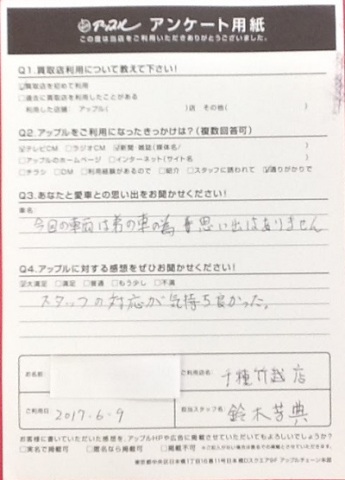 アップル アンケート用紙
この度は当店をご利用いただきありがとうございました。
Q1.買取店利用について教えて下さい!
☑買取店を初めて利用
□過去に買取店を利用したことがある
利用した店舗 アップル( )店 その他( )
Q2.アップルをご利用になったきっかけは?(複数回答可)
☑テレビCM □ラジオCM ☑新聞・雑誌(媒体名/ )
□アップルのホームページ □インターネット(サイト名 )
□チラシ □DM □利用経験があるので □紹介 □スタッフに誘われて ☑通りがかりで
Q3.あなたと愛車との思い出をお聞かせください!
車名:
今回の車両は弟の車の為 思い出はありません
Q4.アップルに対する感想をぜひお聞かせください!
☑大満足 □満足 □普通 □もう少し □不満
スタッフの対応が気持ち良かった。
お名前
ご利用店名: 千種竹越店
ご利用日 2017.6.9
担当スタッフ名: 鈴木芳典
お客様に書いていただいた感想を、アップルHPや広告に掲載させていただいてもよろしいでしょうか?
□実名で掲載可 □匿名なら掲載可 □掲載不可
東京都中央区日本橋1丁目16番11号日本橋Dスクエア5F アップルチェーン本部